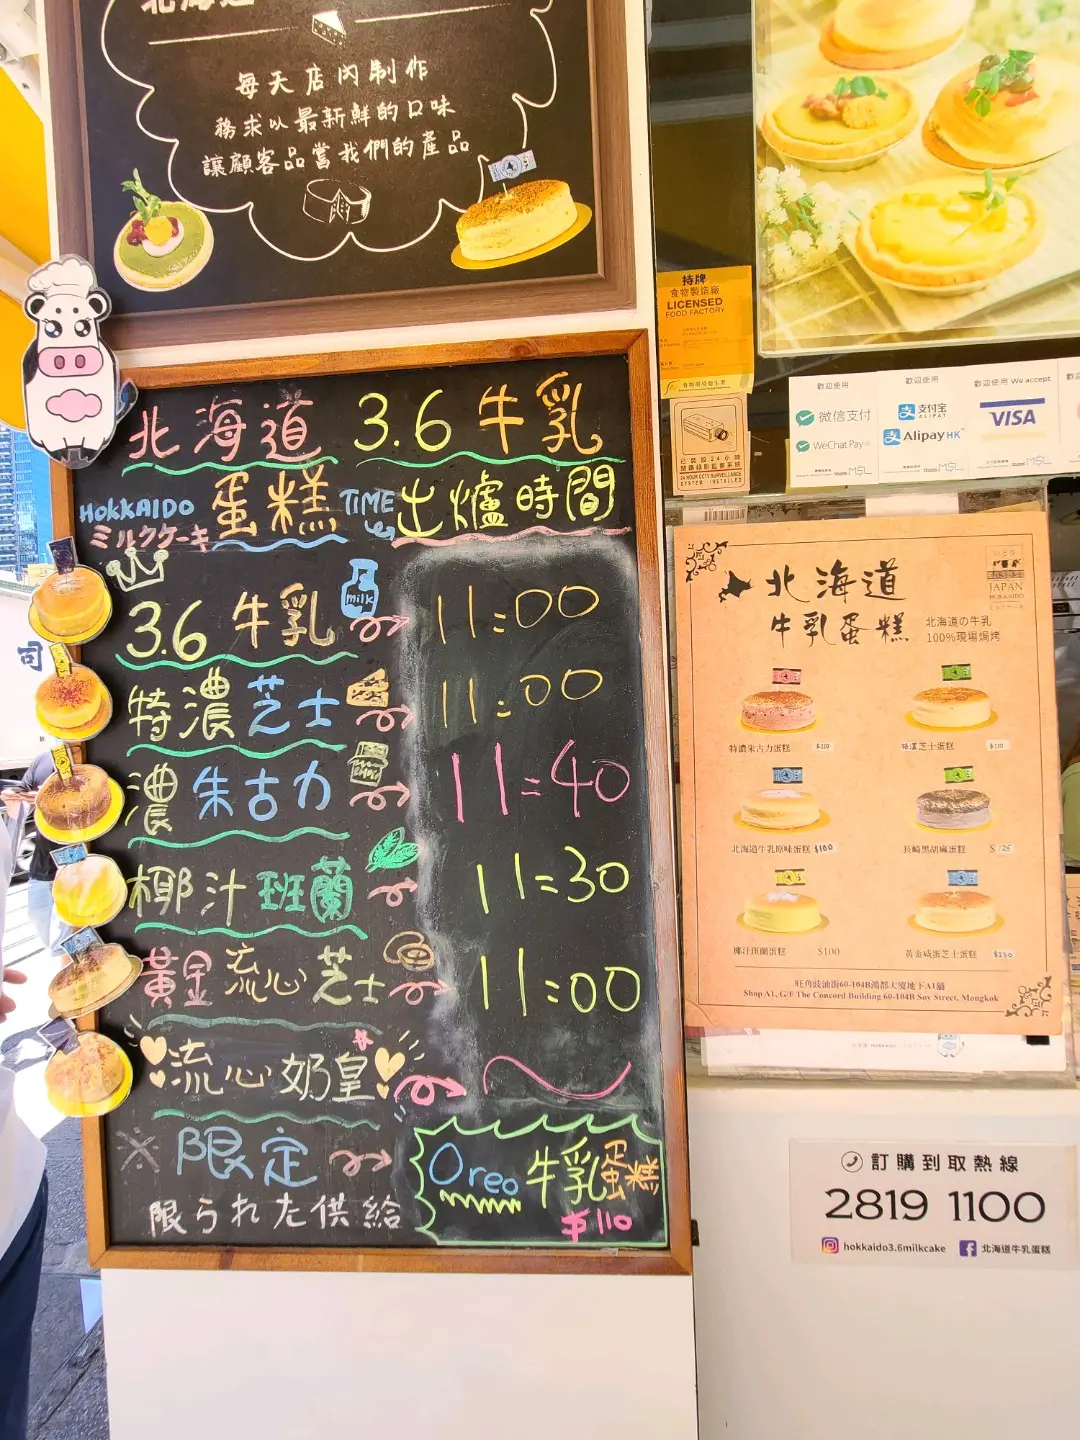 北海道
每天店內制作
務求以最新鮮的口味
讓顧客品嘗我們的產品
持牌
食物製造廠
LICENSED
FOOD FACTORY
已裝設24小時
閉路錄影監察系統
24 HOUR CCTV SURVEILLANCE
SYSTEM INSTALLED
歡迎使用
微信支付
WeChat Pay
歡迎使用
支付宝
ALIPAY
AlipayHK
歡迎使用 We accept
VISA
MSL
MSL
MSL
北海道 3.6牛乳
HOKKAIDO
ミルクケーキ
蛋糕 TIME 出爐時間
3.6牛乳 milk 11:00
特濃芝士 11:00
濃朱古力 11:40
椰汁班蘭 11:30
黃金流心芝士 11:00
流心奶皇
※限定
限られた供給
Oreo 牛乳蛋糕
$110
司
北海道
牛乳蛋糕
JAPAN
HOKKAIDO
北海道の牛乳
100%現場焗烤
特濃朱古力蛋糕 $110
特濃芝士蛋糕 $110
北海道牛乳原味蛋糕 $100
長崎黑胡麻蛋糕
椰汁班蘭蛋糕 $100
黃金咸蛋芝士蛋糕
旺角豉油街60-104B鴻都大廈地下A1舖
Shop A1, G/F The Concord Building 60-104B Soy Street, Mongkok
訂購到取熱線
2819 1100
hokkaido3.6milkcake
北海道牛乳蛋糕